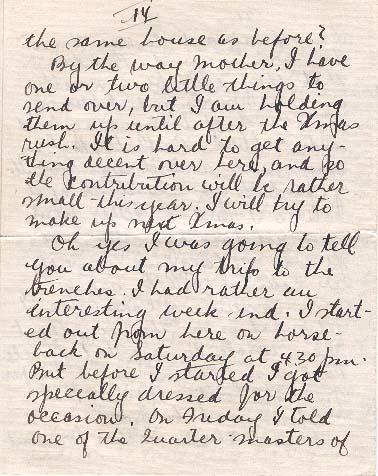 14
the same house as before?
By the way Mother, I have
one or two little things to
send over, but I am holding
them up until after the Xmas
rush. It is hard to get any-
thing decent over here, and so
the contribution will be rather
small this year. I will try to
make up next Xmas.
Oh yes I was going to tell
you about my trip to the
trenches. I had rather an
interesting week-end. I start-
ed out from here on horse-
back on Saturday at 4.30 pm.
But before I started I got
specially dressed for the
occasion. On Friday I told
one of the Quarter-masters of